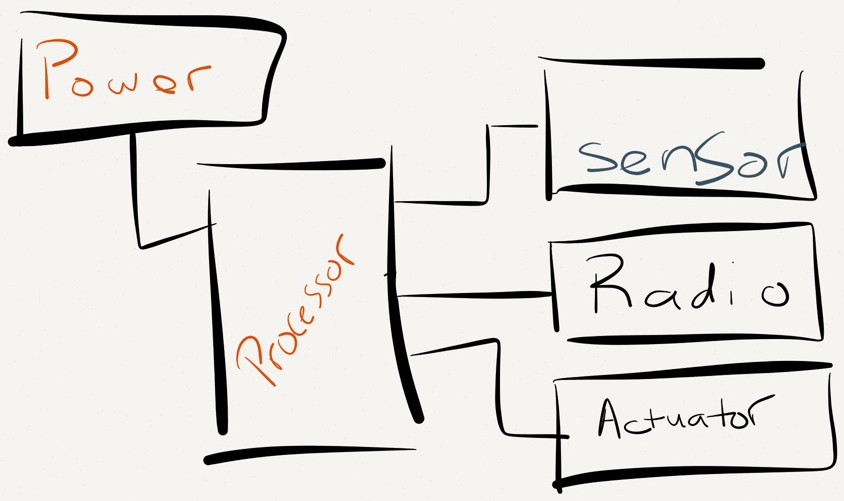 Power
Processor
Sensor
Radio
Actuator